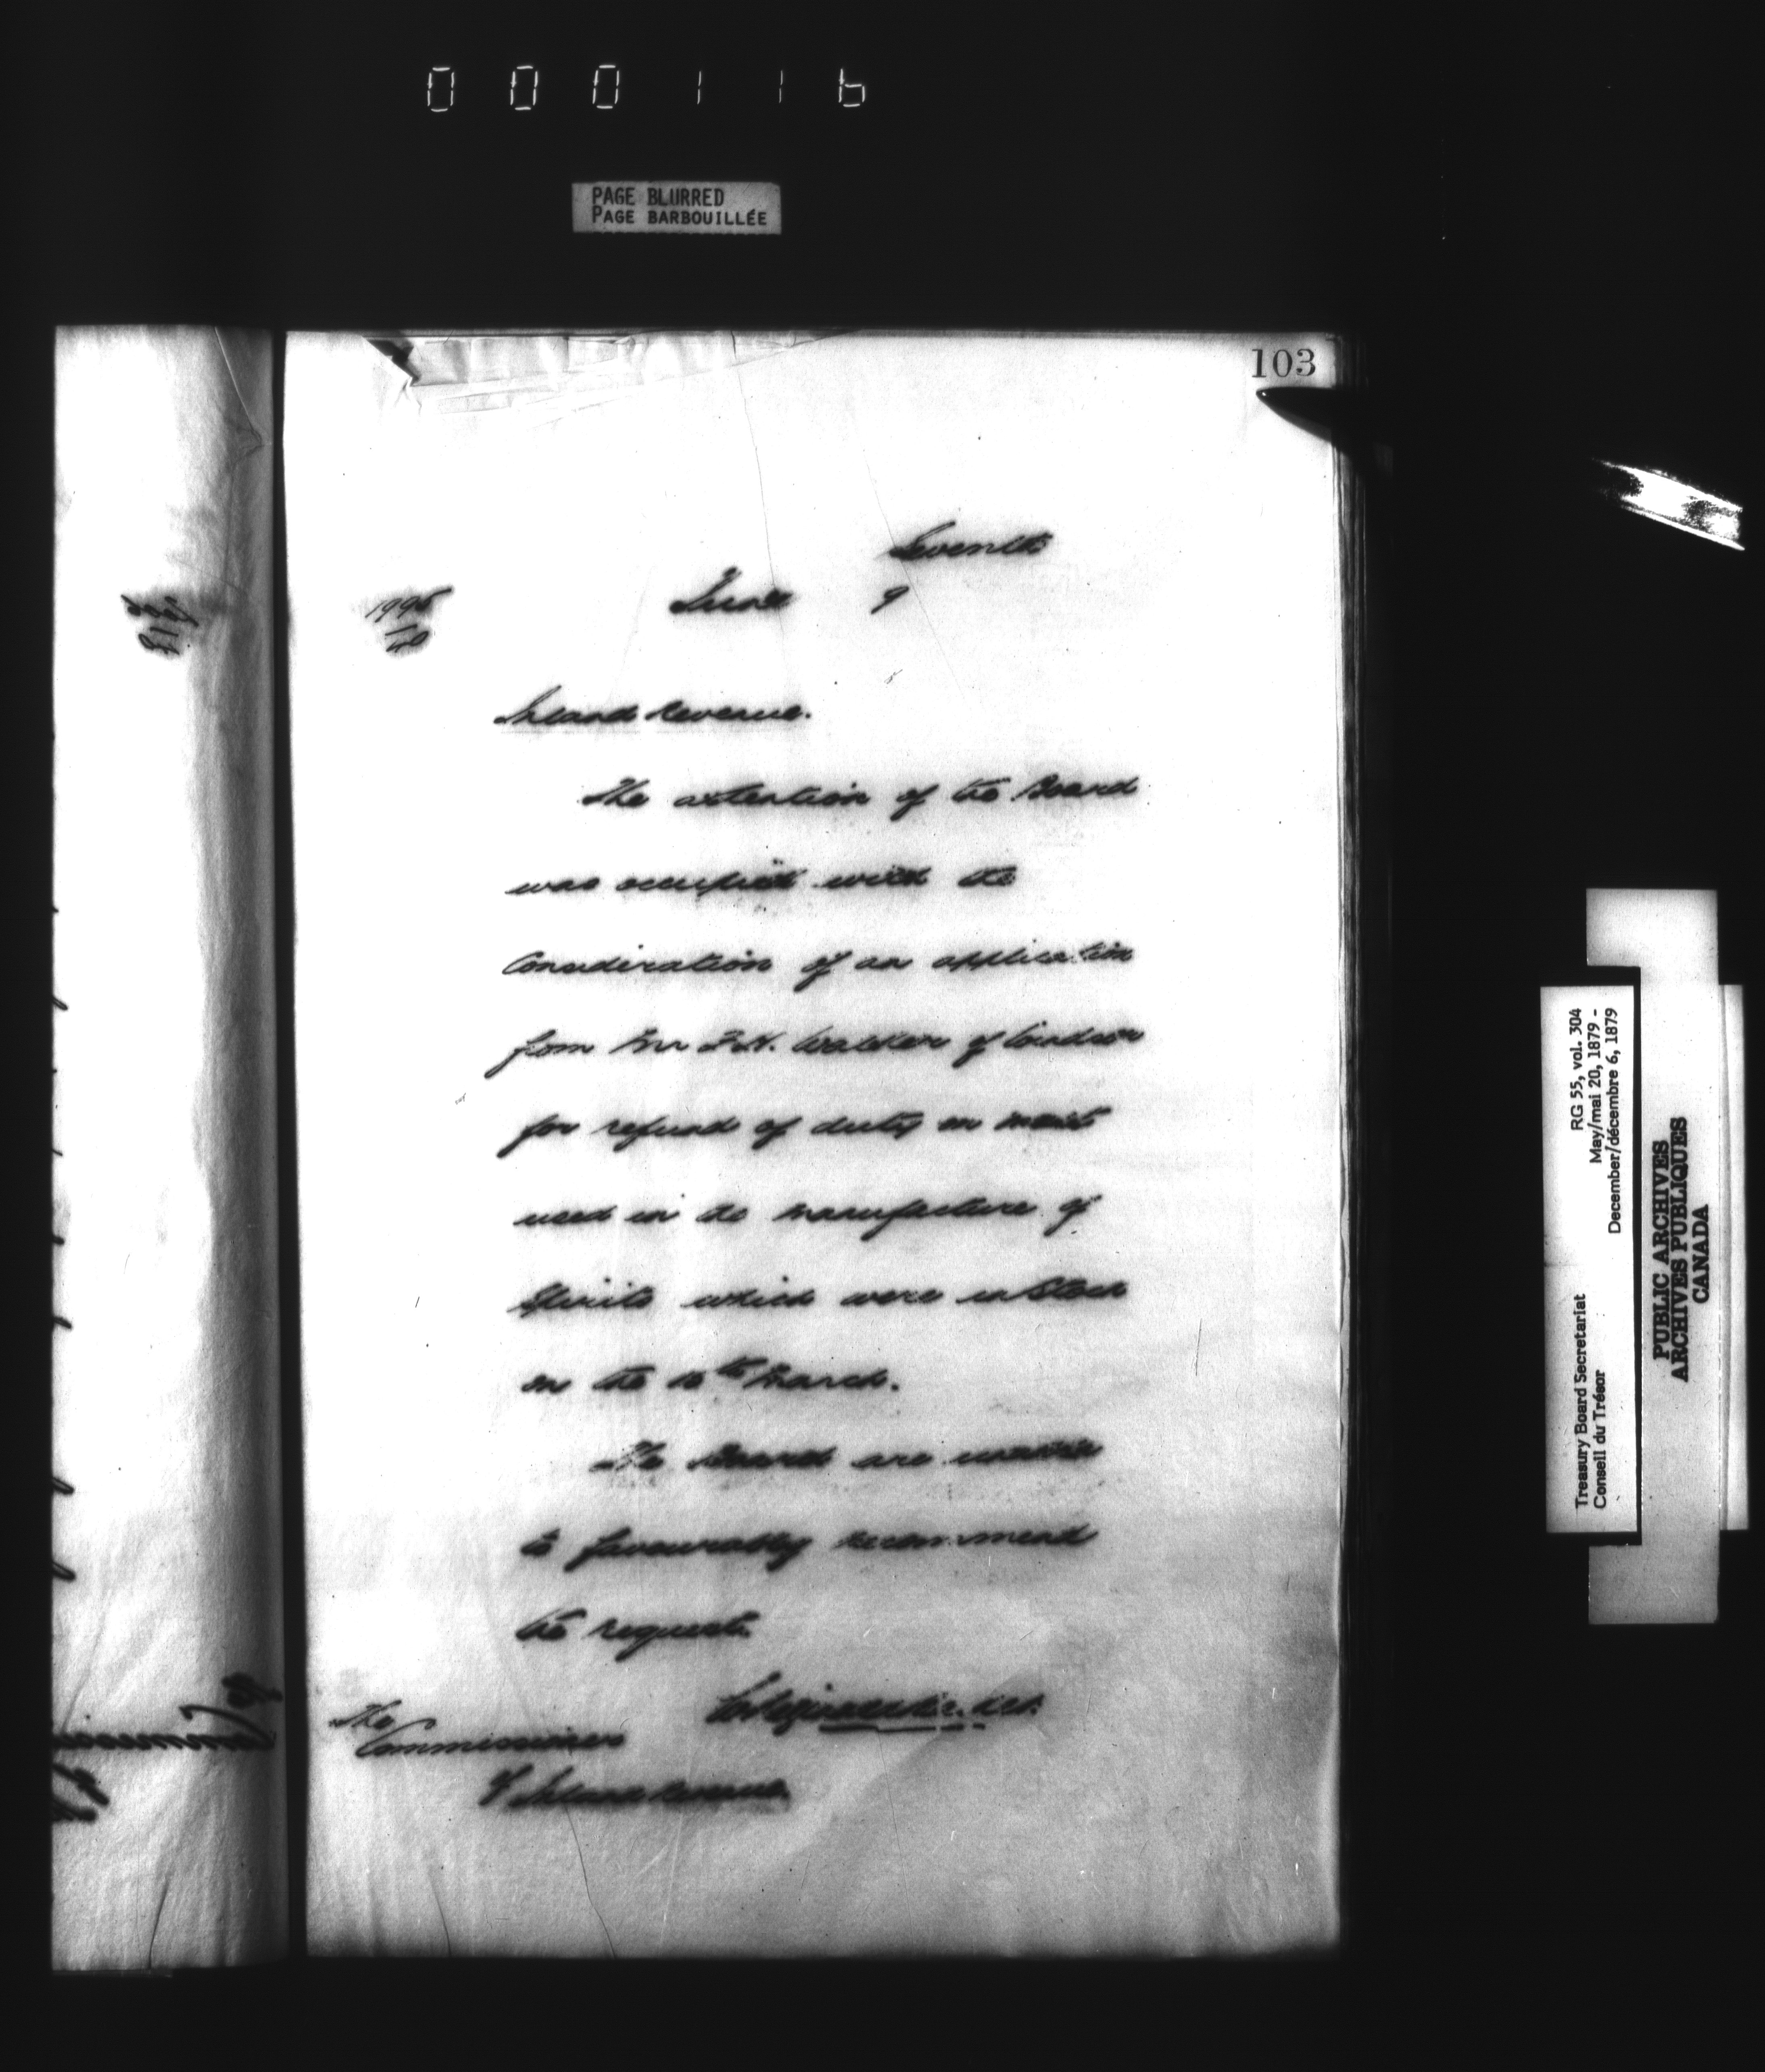 000116
PAGE BLURRED
PAGE BARBOUILLÉE
103
Seventh
June 9
1995
Inland Revenue.
The attention of the Board
was occupied with the
Consideration of an application
from Mr Walker of Windsor
for refund of duty on malt
used in the manufacture of
Spirits which were in Stock
on the 10th March.
The Board are unable
to favourably recommend
the request.
The
Commissioner
of Inland Revenue.
RG 55, vol. 304
May/mai 20, 1879 -
December/décembre 6, 1879
Treasury Board Secretariat
Conseil du Trésor
PUBLIC ARCHIVES
ARCHIVES PUBLIQUES
CANADA